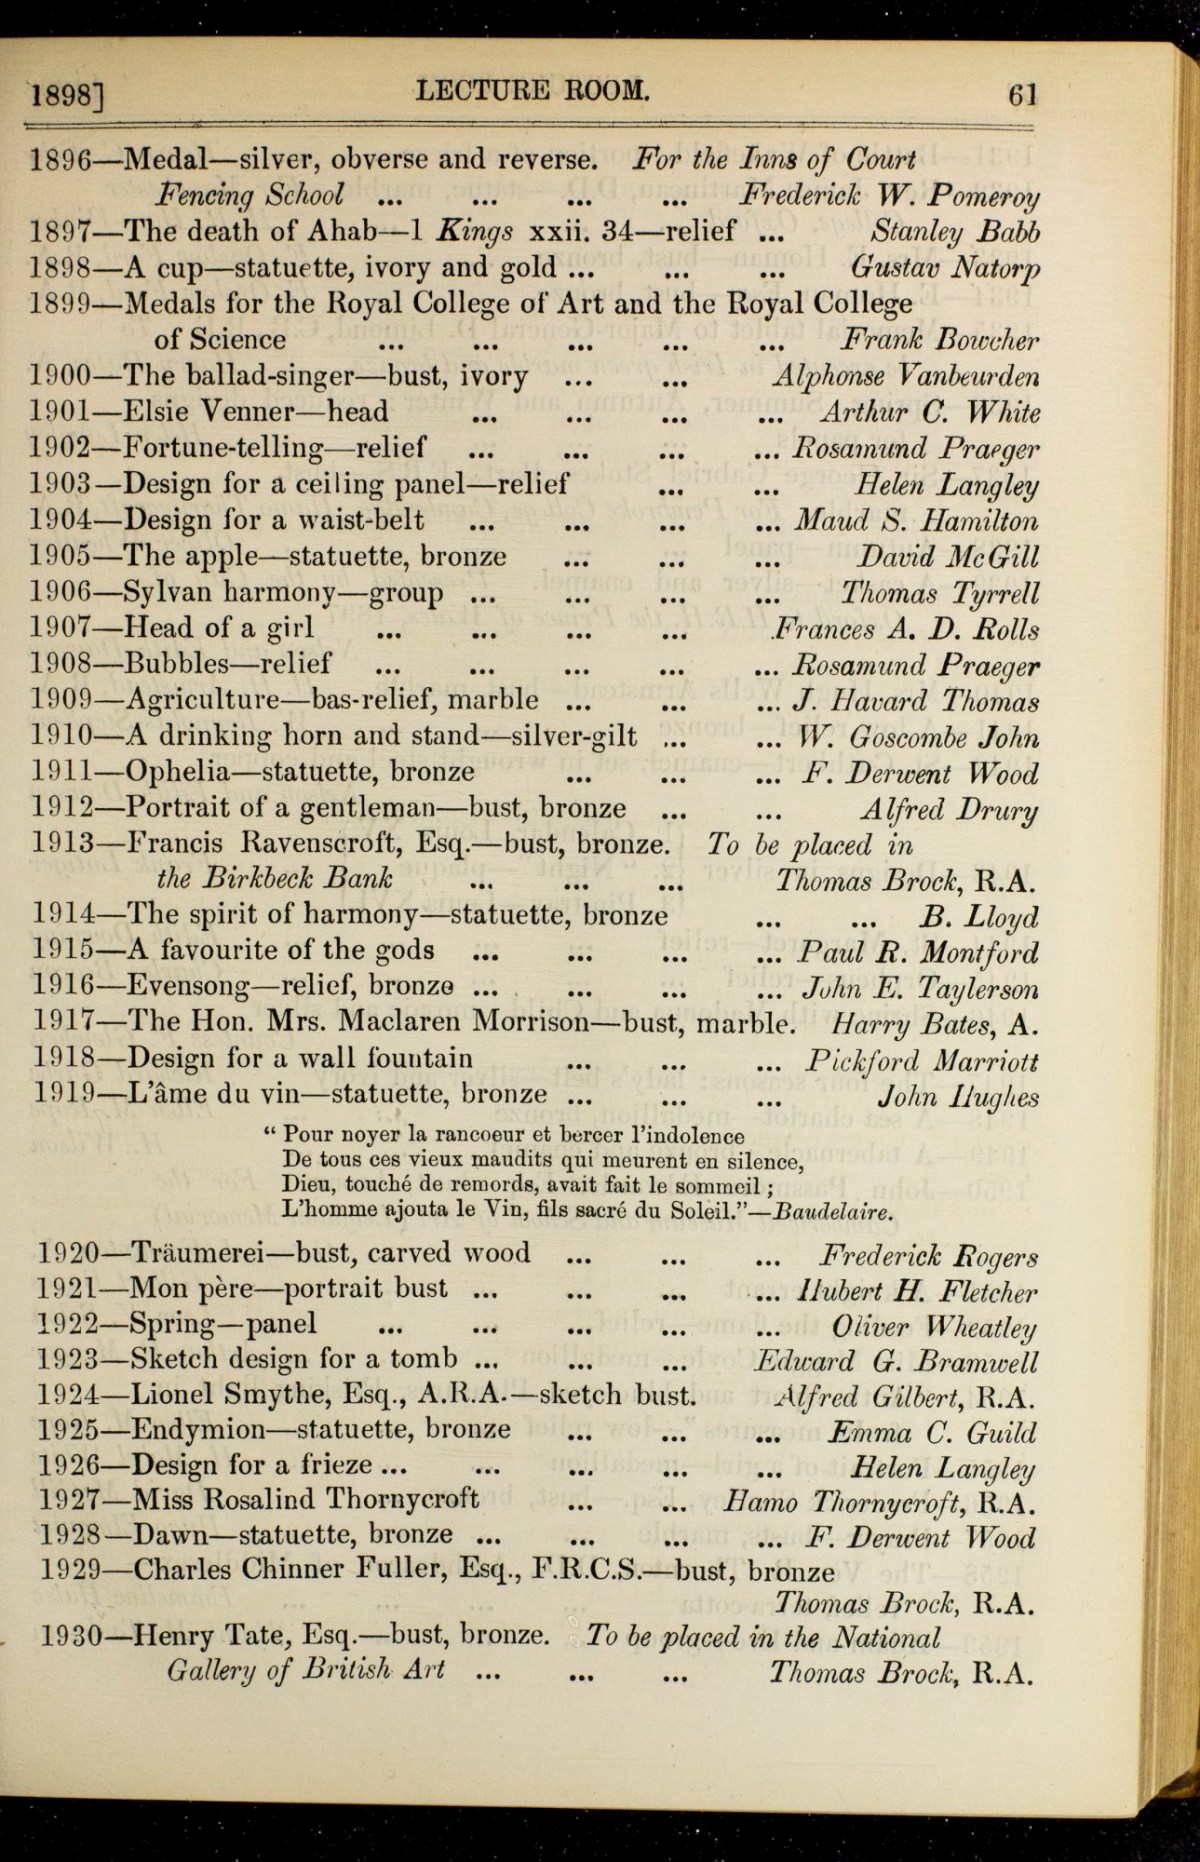 1898] LECTURE ROOM. 61
1896—Medal—silver, obverse and reverse. For the Inns of Court
Fencing School ... ... ... ... Frederick W. Pomeroy
1897—The death of Ahab—1 Kings xxii. 34—relief ... Stanley Babb
1898—A cup—statuette, ivory and gold ... ... ... Gustav Natorp
1899—Medals for the Royal College of Art and the Royal College
of Science ... ... ... ... ... Frank Bowcher
1900—The ballad-singer—bust, ivory ... ... Alphonse Vanbeurden
1901—Elsie Venner—head ... ... ... ... Arthur C. White
1902—Fortune-telling—relief ... ... ... ... Rosamund Praeger
1903—Design for a ceiling panel—relief ... ... Helen Langley
1904—Design for a waist-belt ... ... ... ... Maud S. Hamilton
1905—The apple—statuette, bronze ... ... ... David McGill
1906—Sylvan harmony—group ... ... ... ... Thomas Tyrrell
1907—Head of a girl ... ... ... ... Frances A. D. Rolls
1908—Bubbles—relief ... ... ... ... ... Rosamund Praeger
1909—Agriculture—bas-relief, marble ... ... ... J. Havard Thomas
1910—A drinking horn and stand—silver-gilt ... ... W. Goscombe John
1911—Ophelia—statuette, bronze ... ... ... F. Derwent Wood
1912—Portrait of a gentleman—bust, bronze ... ... Alfred Drury
1913—Francis Ravenscroft, Esq.—bust, bronze. To be placed in
the Birkbeck Bank ... ... ... Thomas Brock, R.A.
1914—The spirit of harmony—statuette, bronze ... ... B. Lloyd
1915—A favourite of the gods ... ... ... ... Paul R. Montford
1916—Evensong—relief, bronze ... ... ... ... John E. Taylerson
1917—The Hon. Mrs. Maclaren Morrison—bust, marble. Harry Bates, A.
1918—Design for a wall fountain ... ... ... Pickford Marriott
1919—L'âme du vin—statuette, bronze ... ... ... John Hughes
“ Pour noyer la rancoeur et bercer l'indolence
De tous ces vieux maudits qui meurent en silence,
Dieu, touché de remords, avait fait le sommeil ;
L'homme ajouta le Vin, fils sacré du Soleil.”—Baudelaire.
1920—Träumerei—bust, carved wood ... ... ... Frederick Rogers
1921—Mon père—portrait bust ... ... ... ... Hubert H. Fletcher
1922—Spring—panel ... ... ... ... ... Oliver Wheatley
1923—Sketch design for a tomb ... ... ... Edward G. Bramwell
1924—Lionel Smythe, Esq., A.R.A.—sketch bust. Alfred Gilbert, R.A.
1925—Endymion—statuette, bronze ... ... ... Emma C. Guild
1926—Design for a frieze ... ... ... ... ... Helen Langley
1927—Miss Rosalind Thornycroft ... ... Hamo Thornycroft, R.A.
1928—Dawn—statuette, bronze ... ... ... ... F. Derwent Wood
1929—Charles Chinner Fuller, Esq., F.R.C.S.—bust, bronze
Thomas Brock, R.A.
1930—Henry Tate, Esq.—bust, bronze. To be placed in the National
Gallery of British Art ... ... ... Thomas Brock, R.A.